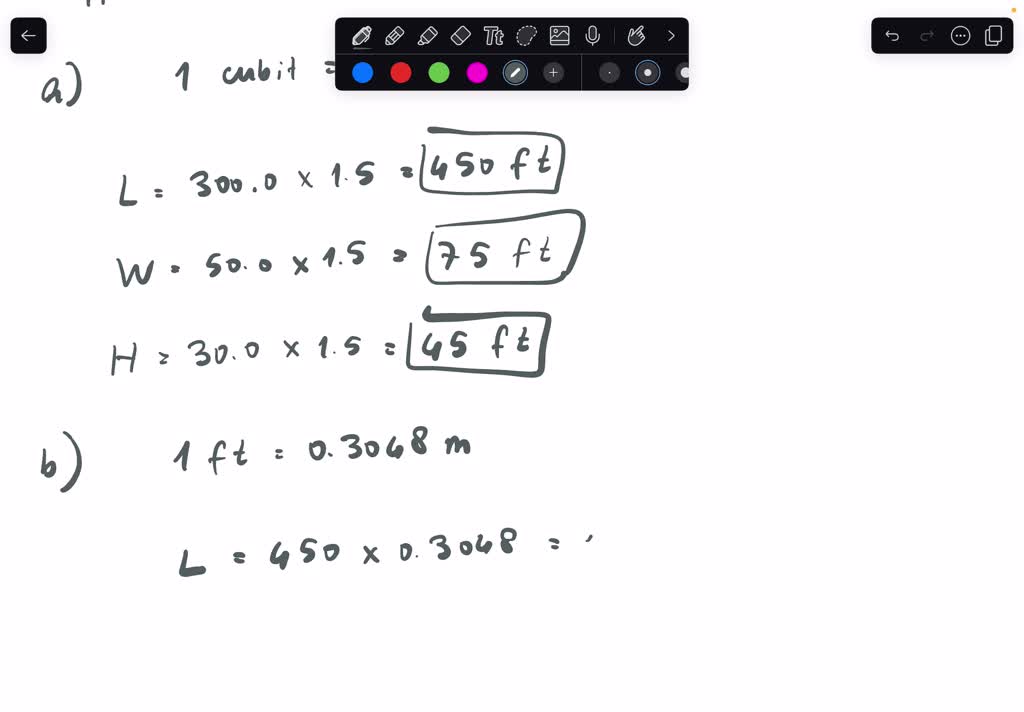 Tt
a) 1 cubit =
L = 300.0 x 1.5 = 450 ft
W = 50.0 x 1.5 = 75 ft
H = 30.0 x 1.5 = 45 ft
b) 1 ft = 0.3048 m
L = 450 x 0.3048 =